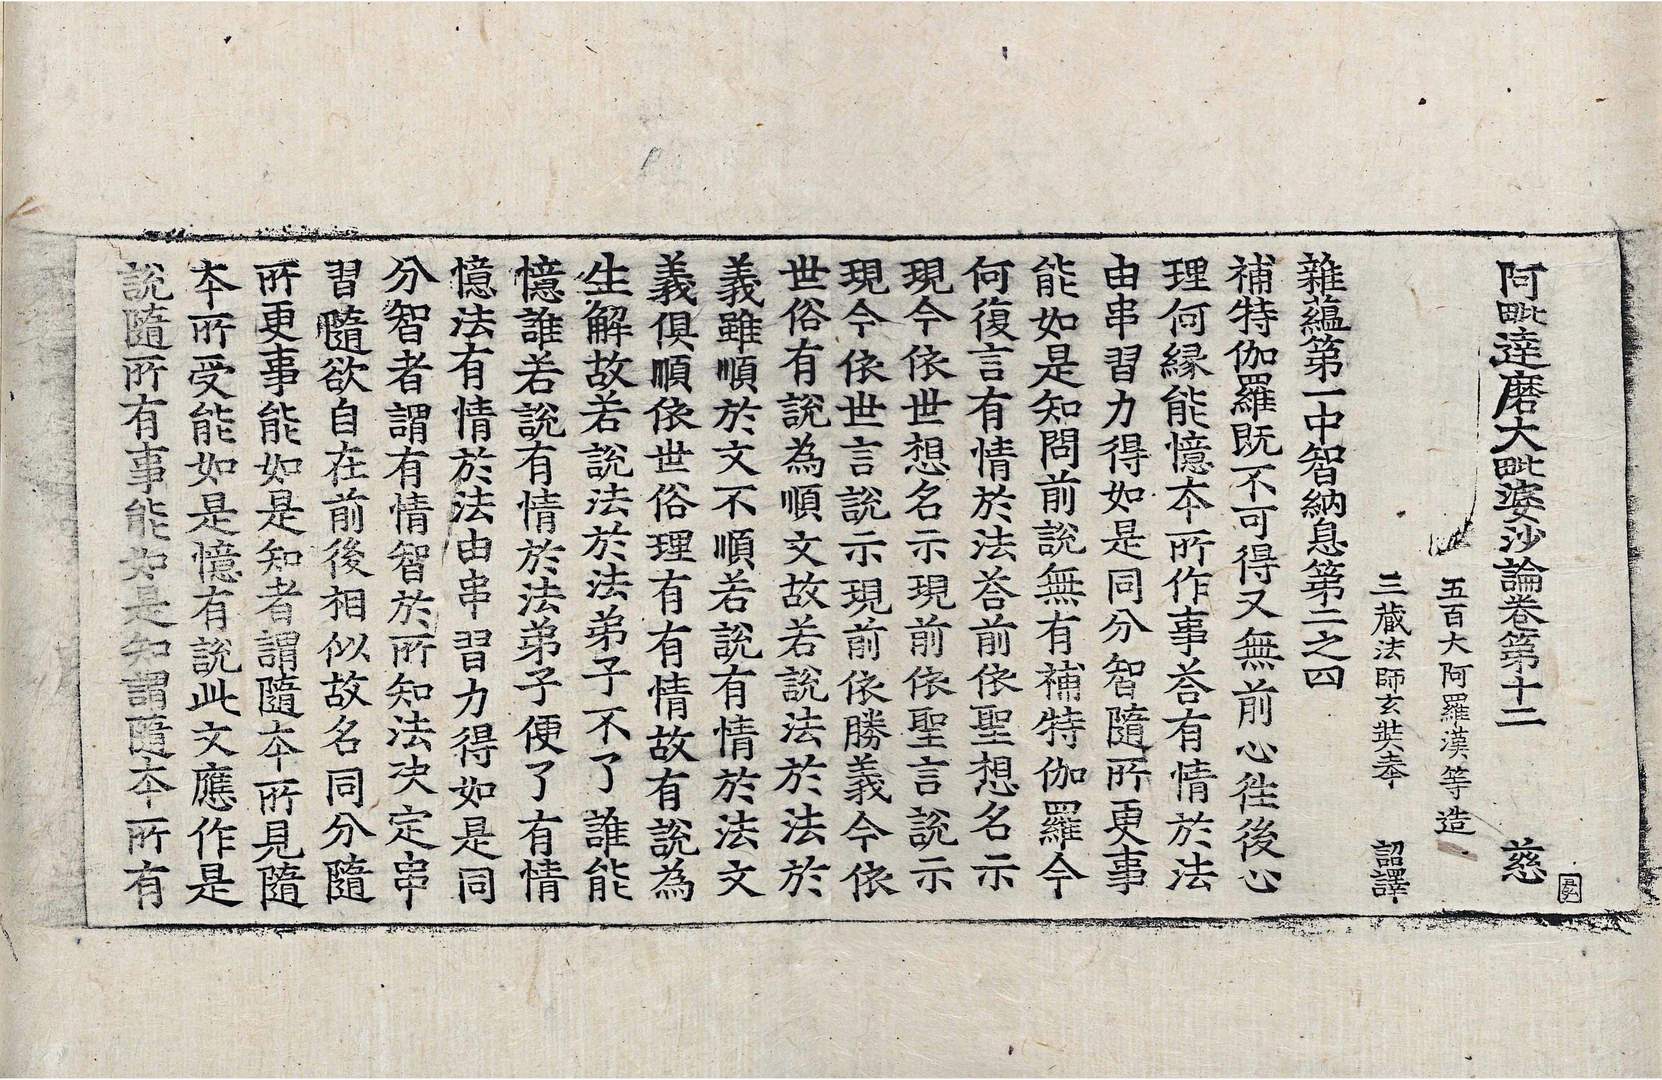 阿毗達磨大毗婆沙論卷第十二 慈
五百大阿羅漢等造
三藏法師玄奘奉 詔譯
雜蘊第一中智納息第二之四
補特伽羅既不可得又無前心徃後心
理何緣能憶夲所作事荅有情於法
由串習力得如是同分智隨所更事
能如是知問前說無有補特伽羅今
何復言有情於法荅前依聖想名示
現今依世想名示現前依聖言說示
現今依世言說示現前依勝義今依
世俗有說為順文故若說法於法於
義雖順於文不順若說有情於法文
義俱順依世俗理有有情故有說為
生解故若說法於法弟子不了誰能
憶誰若說有情於法弟子便了有情
憶法有情於法由串習力得如是同
分智者謂有情智於所知法决定串
習隨欲自在前後相似故名同分隨
所更事能如是知者謂隨夲所見隨
夲所受能如是憶有說此文應作是
說隨所有事能如是知謂隨夲所有